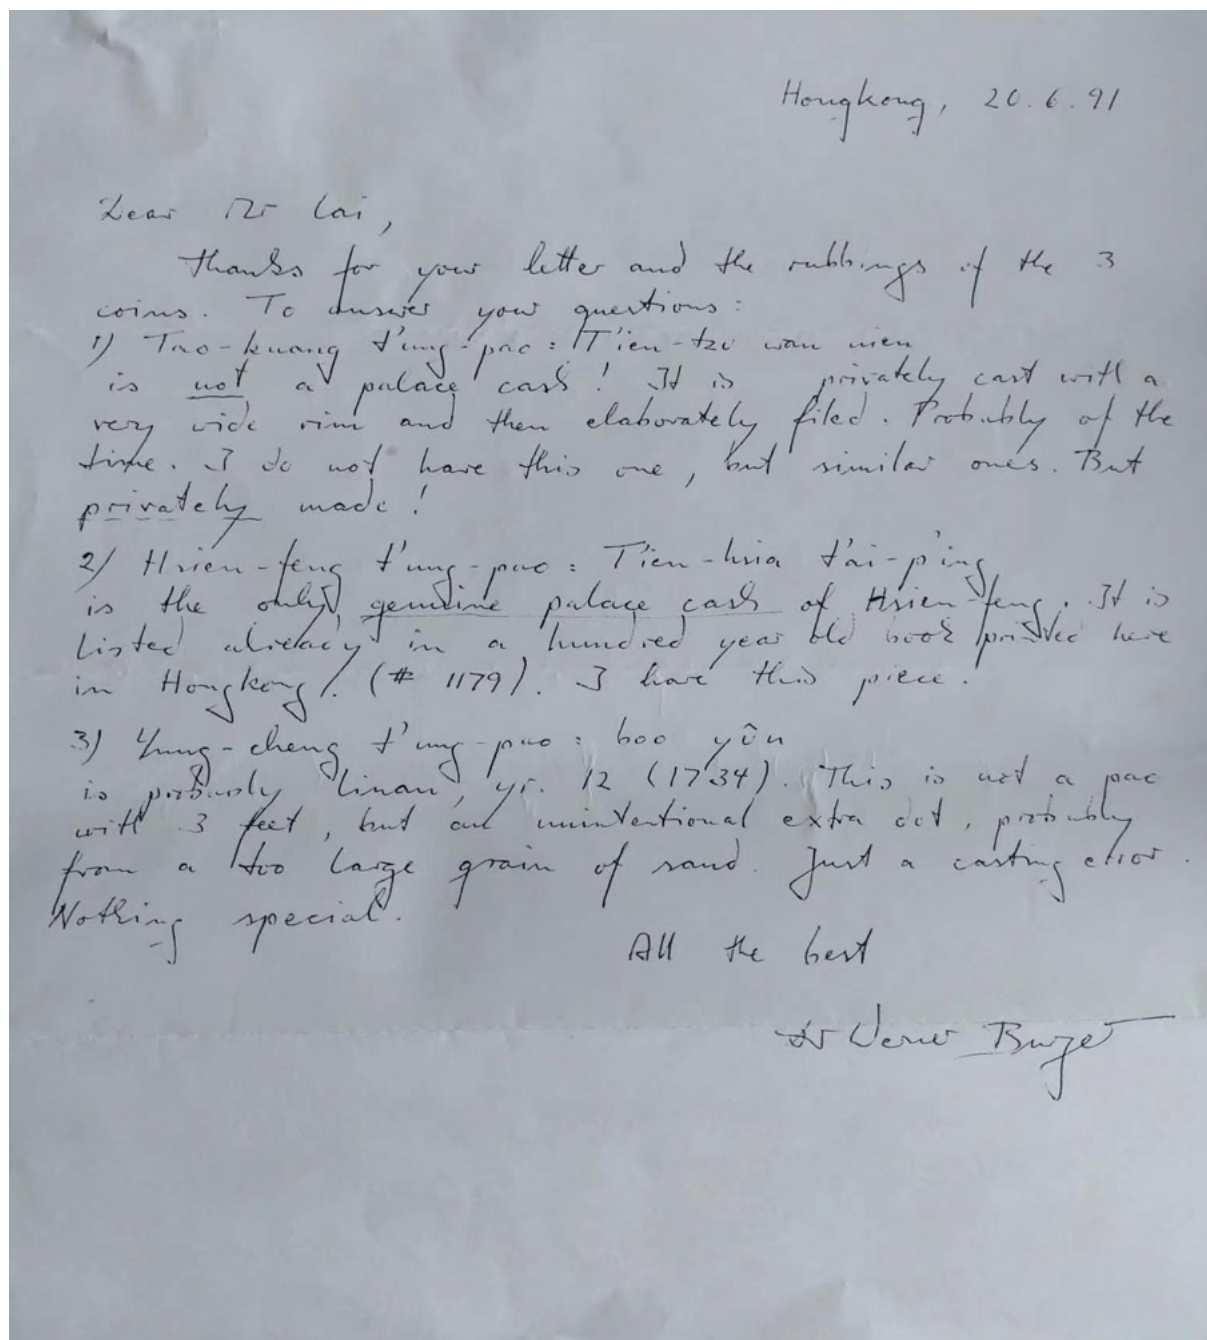 Hongkong, 20.6.91
Dear Mr Lai,
Thanks for your letter and the rubbings of the 3
coins. To answer your questions:
1) Tao-kuang t'ung-pao: T'ien-tzu wan nien
is not a palace cash! It is privately cast with a
very wide rim and then elaborately filed. Probably of the
time. I do not have this one, but similar ones. But
privately made!
2) Hsien-feng t'ung-pao: T'ien-hsia t'ai-p'ing
is the only genuine palace cash of Hsien-feng. It is
listed already in a hundred year old book printed here
in Hongkong. (# 1179). I have this piece.
3) Yung-cheng t'ung-pao: boo yôn
is probably Yunnan, yr. 12 (1734). This is not a pao
with 3 feet, but an unintentional extra dot, probably
from a too large grain of sand. Just a casting error.
Nothing special.
All the best
Dr Werner Burger